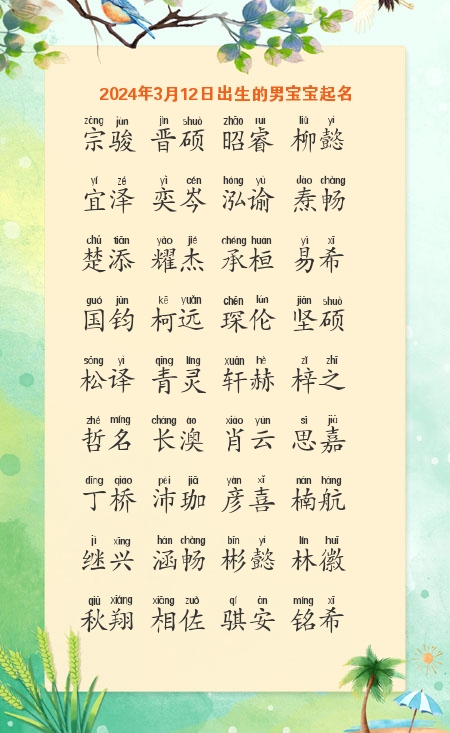 2024年3月12日出生的男宝宝起名
zōng jùn jìn shuò zhāo ruì liǔ yì
宗骏 晋硕 昭睿 柳懿
yí zé yì cén hóng yù dào chàng
宜泽 奕岑 泓谕 焘畅
chǔ tiān yào jié chéng huán yì xī
楚添 耀杰 承桓 易希
guó jūn kē yuǎn chēn lún jiān shuò
国钧 柯远 琛伦 坚硕
sōng yì qīng líng xuān hè zǐ zhī
松译 青灵 轩赫 梓之
zhé míng cháng ào xiāo yún sī jiā
哲名 长澳 肖云 思嘉
dīng qiáo pèi jiā yàn xǐ nán háng
丁桥 沛珈 彦喜 楠航
jì xīng hán chàng bīn yì lín huī
继兴 涵畅 彬懿 林徽
qiū xiáng xiāng zuǒ qí ān míng xī
秋翔 相佐 骐安 铭希